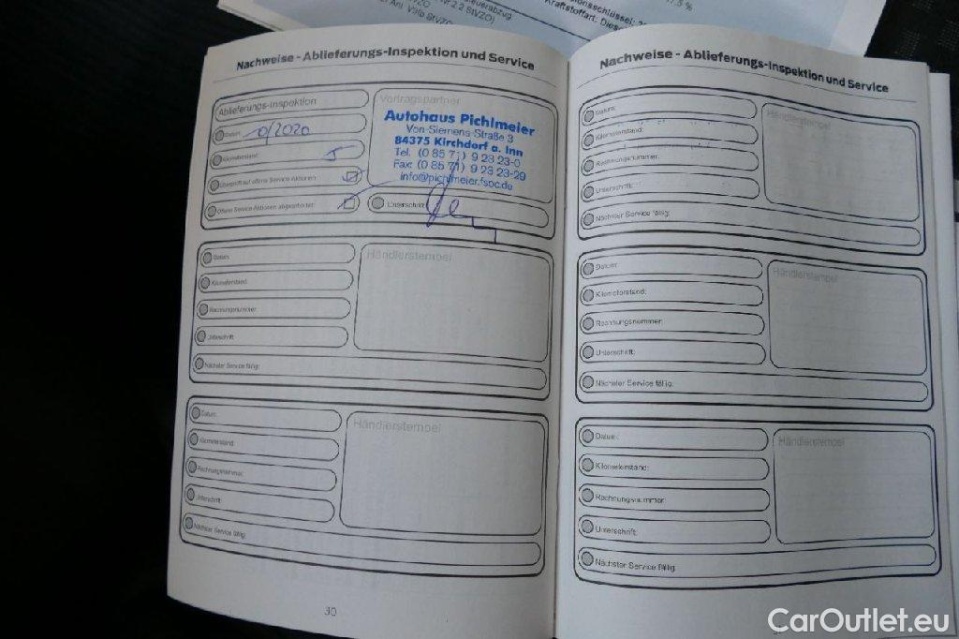 Kraftstoffart: Dies
Nachweise - Ablieferungs-Inspektion und Service
Ablieferungs-Inspektion
Datum:
0/2020
Kilometerstand:
5
Offene Service Aktionen abgearbeitet
Vertragspartner
Autohaus Pichlmeier
Von-Siemens-Straße 3
84375 Kirchdorf a. Inn
Tel. (0 85 71) 9 23 23-0
Fax: (0 85 71) 9 23 23-29
info@pichlmeier.fsoc.de
Unterschrift:
Datum:
Kilometerstand:
Rechnungsnummer:
Unterschrift:
Nächster Service fällig:
Händlerstempel
Datum:
Kilometerstand:
Rechnungsnummer:
Unterschrift:
Nächster Service fällig:
Händlerstempel
30
Nachweise - Ablieferungs-Inspektion und Service
Datum:
Kilometerstand:
Rechnungsnummer:
Unterschrift:
Nächster Service fällig:
Händlerstempel
Datum:
Kilometerstand:
Rechnungsnummer:
Unterschrift:
Nächster Service fällig:
Händlerstempel
Datum:
Kilometerstand:
Rechnungsnummer:
Unterschrift:
Nächster Service fällig:
Händlerstempel
CarOutlet.eu